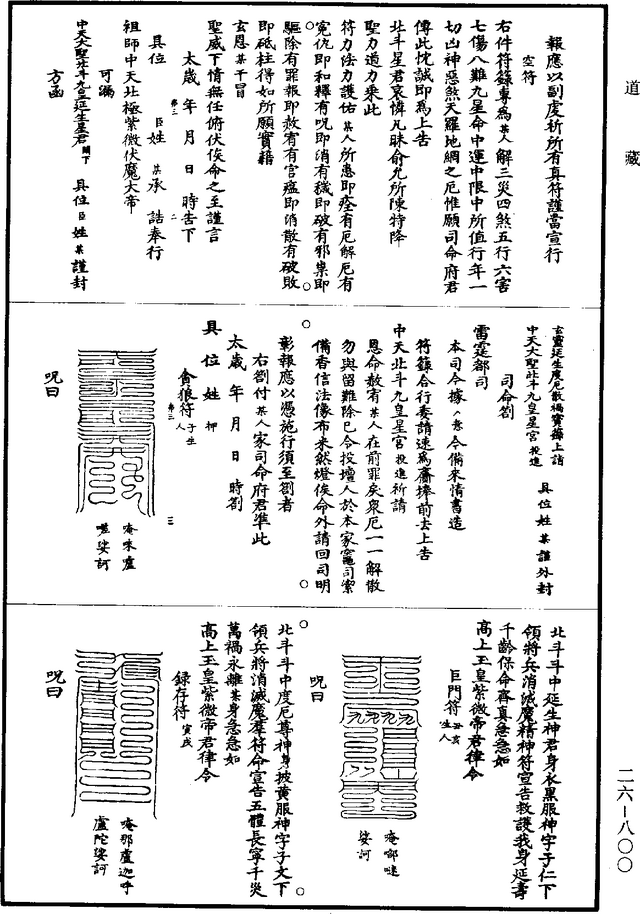 道藏
報應以副虔祈所有真符謹當宣行
空符
右件符籙專為某人解三災四煞五行六害
七傷八難九星命中運中限中所值行年一
切凶神惡煞天羅地網之厄惟願司命府君
傳此忱誠即為上告
北斗星君哀憐凡昧俞允所陳特降
聖力道力乘此
符力法力護佑某人所患即痊有厄解厄有
冤仇即和釋有呪即消有穢即破有邪祟即
驅除有罪報即赦宥有官瘟即消散有破敗
即砥柱得如所願實藉
玄恩某干冒
聖威下情無任俯伏俟命之至謹言
太歲年月日時告下
弟三
二
具位臣姓某承誥奉行
祖師中天北極紫微伏魔大帝
可漏
中天大聖北斗九皇延生星君閣下
方函
具位臣姓某謹封
玄靈延生度厄散禍寶籙上請
中天大聖北斗九皇星宮投進
具位姓某謹外封
司命劄
雷霆都司
本司今據入意今備來情書造
符籙合行委請速為齎捧前去上告
中天北斗九皇星宮投進祈請
恩命赦宥某人在前罪矣眾厄一一解散
勿與留難除已令投壇人於本家竈司潔
備香信法像布米然燈俟命外請回司明
彰報應以憑施行須至劄者
右劄付某人家司命府君準此
太歲年月日時劄
具位姓押
弟三
三
貪狼符子生人
呪曰
唵朱盧
嚂娑訶
北斗斗中延生神君身衣黑服神字子仁下
領將兵消滅魔精神符宣告救護我身延壽
千齡保命齊真急急如
高上玉皇紫微帝君律令
巨門符丑亥生人
呪曰
唵唧噠
娑訶
北斗斗中度厄尊神身披黃服神字子文下
領兵將消滅魔羣符命宣告五體長寧千災
萬禍永離某身急急如
高上玉皇紫微帝君律令
錄存符寅戌
呪曰
唵那盧迦呼
盧陀娑訶
二六—八〇〇